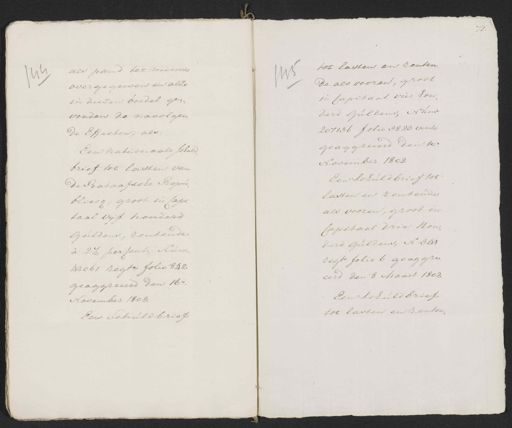 144
als pand ter minne
overgegeven en alzo
in dezen boedel ge-
vonden de navolgen
de Effecten, als.
Een Nationaale schuld
brief ten lasten van
de Bataafsche Repu-
bliecq, groot in Capi
taal vyf honderd
Guldens, rentende
à 2½ percent, Num
folio
geaggreeerd den
November 1802
Een Schuldbrief
145
ten lasten en rentende
als vooren, groot
in Capitaal vier hon-
derd Guldens, Num
folio
geaggreeerd den
November 1802
Een schuldbrief ten
lasten en rentende
als vooren, groot in
Capitaal drie hon
derd Guldens, N
regt folio 6 geaggre
eerd den 8 Maart 1802
Een schuldbrief
ten lasten en renten